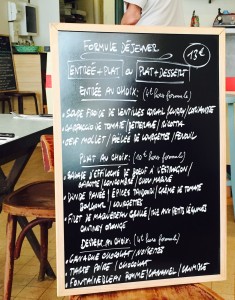 FORMULE DÉJEUNER
13€
ENTRÉE + PLAT ou PLAT + DESSERT
ENTRÉE AU CHOIX: (hors formule)
SOUPE FROIDE DE LENTILLES CORAIL / CURRY / CORIANDRE
CARPACCIO DE TOMATE / BETTERAVE / RICOTTA
OEUF MOLLET / GELÉE DE COURGETTES / FENOUIL
PLAT AU CHOIX: (hors formule)
SALADE D'EFFILOCHÉ DE BOEUF À L'ESTRAGON /
CAROTTE / CONCOMBRE / CHOU MARINÉ
DINDE PANÉE / ÉPICES TANDOORI / CRÈME DE TOMATE
BOULGOUR COURGETTES
FILET DE MAQUEREAU GRILLÉ / RIZ AUX PETITS LÉGUMES
CHUTNEY ORANGE
DESSERT AU CHOIX: (hors formule)
GANACHE CHOCOLAT / NOISETTES
TARTE POIRE / CHOCOLAT
FONTAINEBLEAU POMME / CARAMEL / CANNELLE